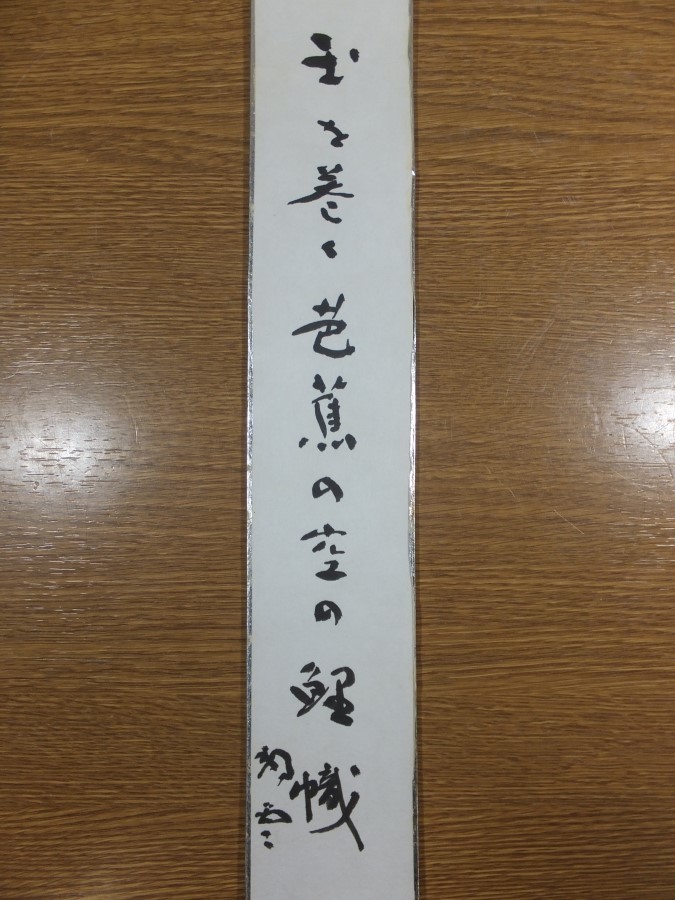 玉を巻く芭蕉の空の鯉幟